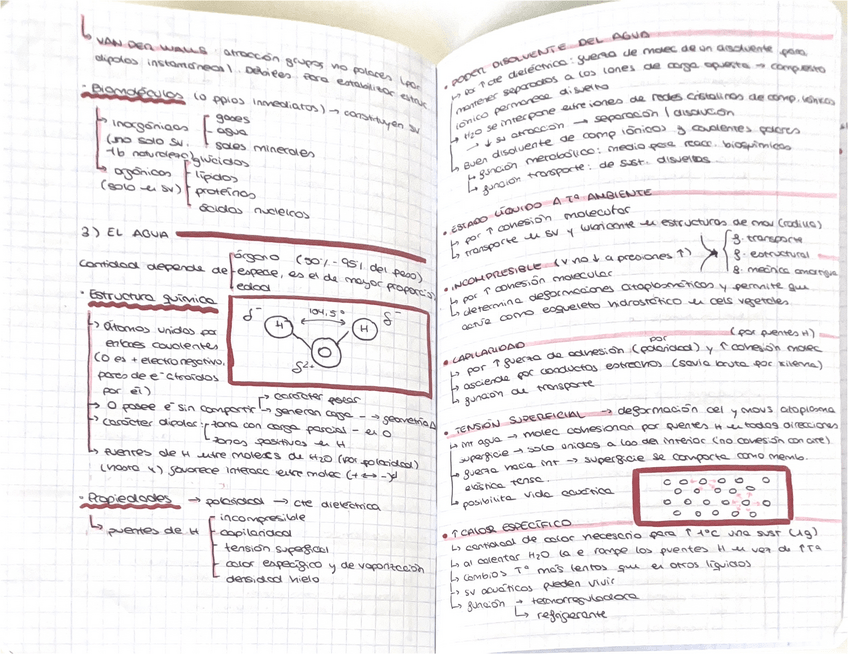 ↳ VAN DER WALLS: atracción grupos no polares (por
dipolos instantáneos). Débiles para estabilizar estruc
· Biomoléculas (o ppios inmediatos) → constituyen sv
↳ inorgánicas
(uno solo sv.
tb naturaleza)
gases
agua
sales minerales
↳ orgánicas
(solo en sv)
glúcidos
lípidos
proteínas
ácidos nucleicos
3) EL AGUA
cantidad depende de
órgano (90% - 95% del peso)
especie, es el de mayor proporción
edad
· Estructura química
↳ átomos unidos por
enlaces covalentes
(O es + electronegativo,
pares de e⁻ atraídos
por él)
δ⁻ H 104,5° H δ⁻
O
δ²⁻
→ O posee e⁻ sin compartir
carácter polar
generan carga - → geometría Δ
→ carácter dipolar:
zona con carga parcial - en O
zonas positivas en H
↳ puentes de H entre molecs de H₂O (por polaridad)
(hasta 4) favorece interacc entre molec (+ ↔ -)
· Propiedades → polaridad → cte dieléctrica
↳ puentes de H
incompresible
capilaridad
tensión superficial
calor específico y de vaporización
densidad hielo
• PODER DISOLVENTE DEL AGUA
↳ por ↑ cte dieléctrica: fuerza de molec de un disolvente para
mantener separados a los iones de carga opuesta → compuesto
iónico permanece disuelto
↳ H₂O se interpone entre iones de redes cristalinas de comp. iónicos
→ ↓ su atracción → separación / disolución
↳ Buen disolvente de comp iónicos y covalentes polares
↳ función metabólica: medio para reacc. bioquímicas
↳ función transporte: de sust. disueltas.
• ESTADO LÍQUIDO A Tª AMBIENTE
↳ por ↑ cohesión molecular
↳ transporte en SV y lubricante en estructuras de mov (rodilla)
f. transporte
f. estructural
f. mecánica amortigua
• INCOMPRESIBLE (v no ↓ a presiones ↑)
↳ por ↑ cohesión molecular
↳ determina deformaciones citoplasmáticas y permite que
actúa como esqueleto hidrostático en cels vegetales
• CAPILARIDAD
↳ por ↑ fuerza de adhesión (por polaridad) y ↑ cohesión molec (por puentes H)
↳ asciende por conductos estrechos (savia bruta por xilema)
↳ función de transporte
• TENSIÓN SUPERFICIAL → deformación cel y movs citoplasma
↳ int agua → molec cohesionan por puentes H en todas direcciones
superficie → solo unidos a las del interior (no cohesión con aire)
↳ fuerza hacia int → superficie se comporta como memb.
elástica tensa.
↳ posibilita vida acuática
• ↑ CALOR ESPECÍFICO
↳ cantidad de calor necesario para ↑ 1ºC una sust (1g)
↳ al calentar H₂O la e rompe los puentes H en vez de ↑ Tª
↳ cambios Tª más lentos que en otros líquidos
↳ sv acuáticos pueden vivir
↳ función → termorreguladora
↳ refrigerante